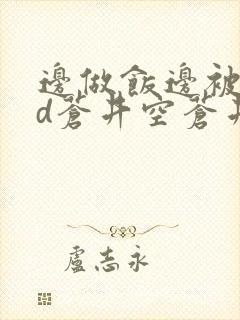 邊做飯邊被
d蒼井空蒼井
盧志永